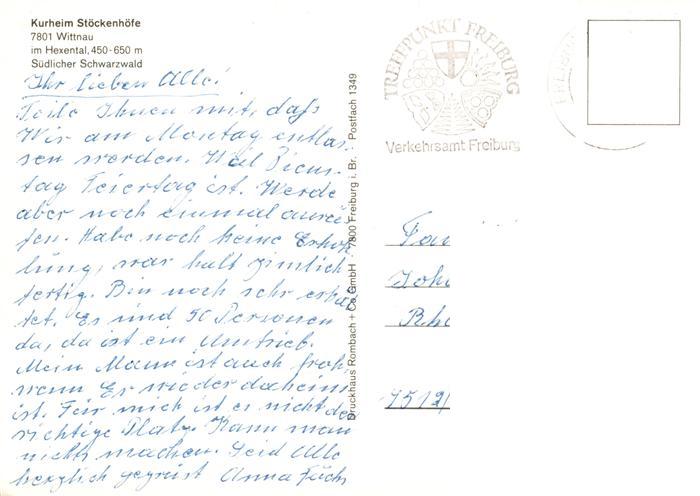 Kurheim Stöckenhöfe
7801 Wittnau
im Hexental, 450-650 m
Südlicher Schwarzwald
Ihr lieben Alle!
Teile Ihnen mit, daß
Wir am Montag entlas-
sen werden. Weil Diens-
tag Feiertag ist. Werde
aber noch einmal
ten. Habe noch keine Erhoh
lung, war halt zimlich
fertig. Bin noch sehr erkäl
tet. Es sind 50 Personen
da, da ist ein Umtrieb.
Mein Mann ist auch froh,
wenn Er wieder daheim
ist. Für mich ist es nicht der
richtige Platz. Kann man
nichts machen. Seid Alle
herzlich gegrüst Anna Fuchs
Druckhaus Rombach + Co GmbH · 7800 Freiburg i. Br. Postfach 1349
TREFFPUNKT FREIBURG
Verkehrsamt Freiburg
Fam
Joh
Rh
7512